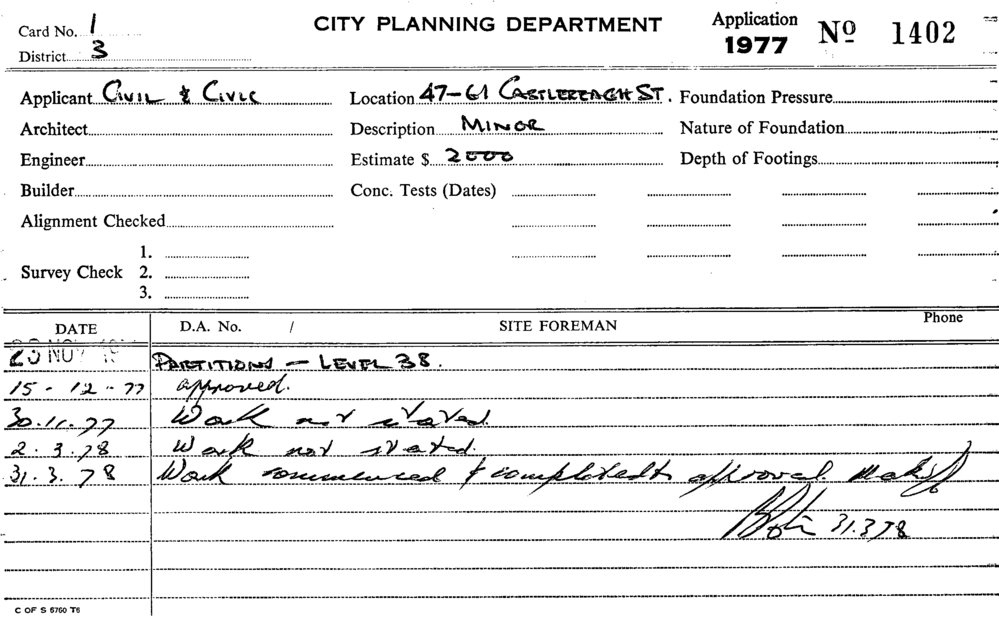 Card No. 1
District 3
CITY PLANNING DEPARTMENT
Application 1977 Nº 1402
Applicant CIVIL & CIVIC
Location 47-61 CASTLEREAGH ST.
Foundation Pressure
Architect
Description MINOR
Nature of Foundation
Engineer
Estimate $ 2000
Depth of Footings
Builder
Conc. Tests (Dates)
Alignment Checked
Survey Check
1.
2.
3.
DATE D.A. No. / SITE FOREMAN Phone
23 NOV 19 PARTITIONS - LEVEL 38.
15-12-77 approved.
30.11.77 Work not stated.
2.3.78 Work not stated.
31.3.78 Work commenced & completed to approval.
31.3.78
C OF S 5760 T6